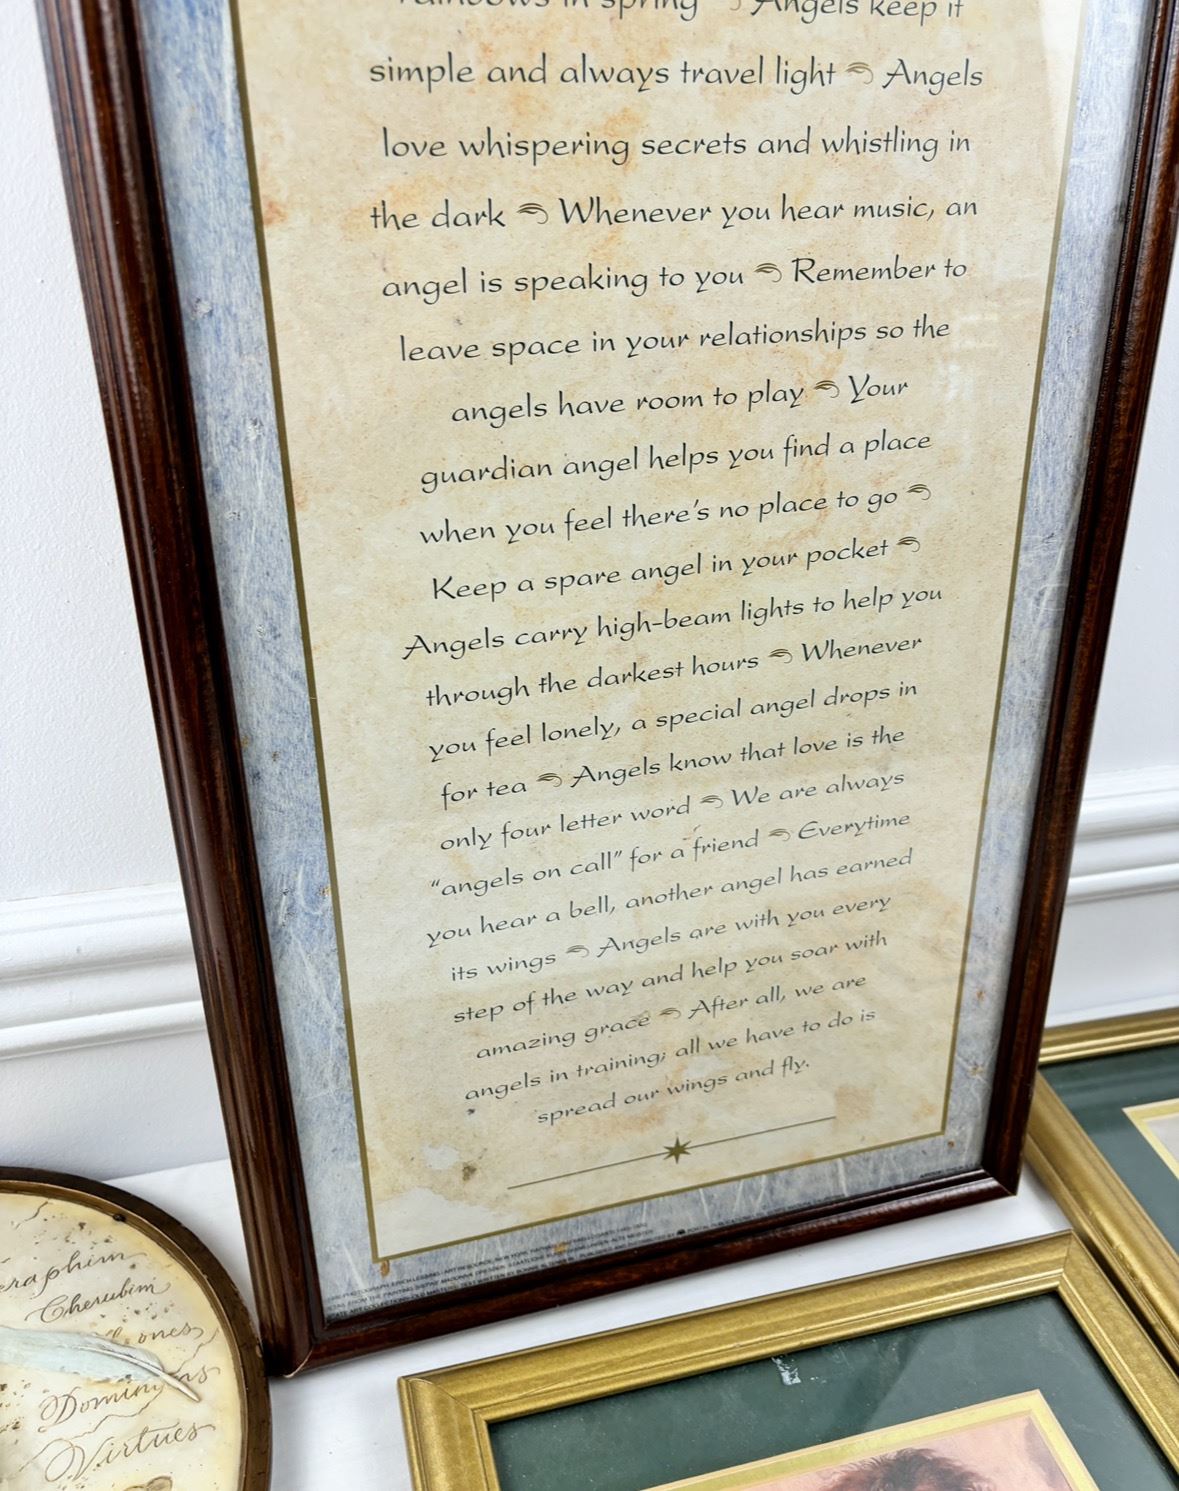 rainbows in spring Angels keep it
simple and always travel light Angels
love whispering secrets and whistling in
the dark Whenever you hear music, an
angel is speaking to you Remember to
leave space in your relationships so the
angels have room to play Your
guardian angel helps you find a place
when you feel there's no place to go
Keep a spare angel in your pocket
Angels carry high-beam lights to help you
through the darkest hours Whenever
you feel lonely, a special angel drops in
for tea Angels know that love is the
only four letter word We are always
"angels on call" for a friend Everytime
you hear a bell, another angel has earned
its wings Angels are with you every
step of the way and help you soar with
amazing grace After all, we are
angels in training; all we have to do is
spread our wings and fly.
Cherubim
Virtues